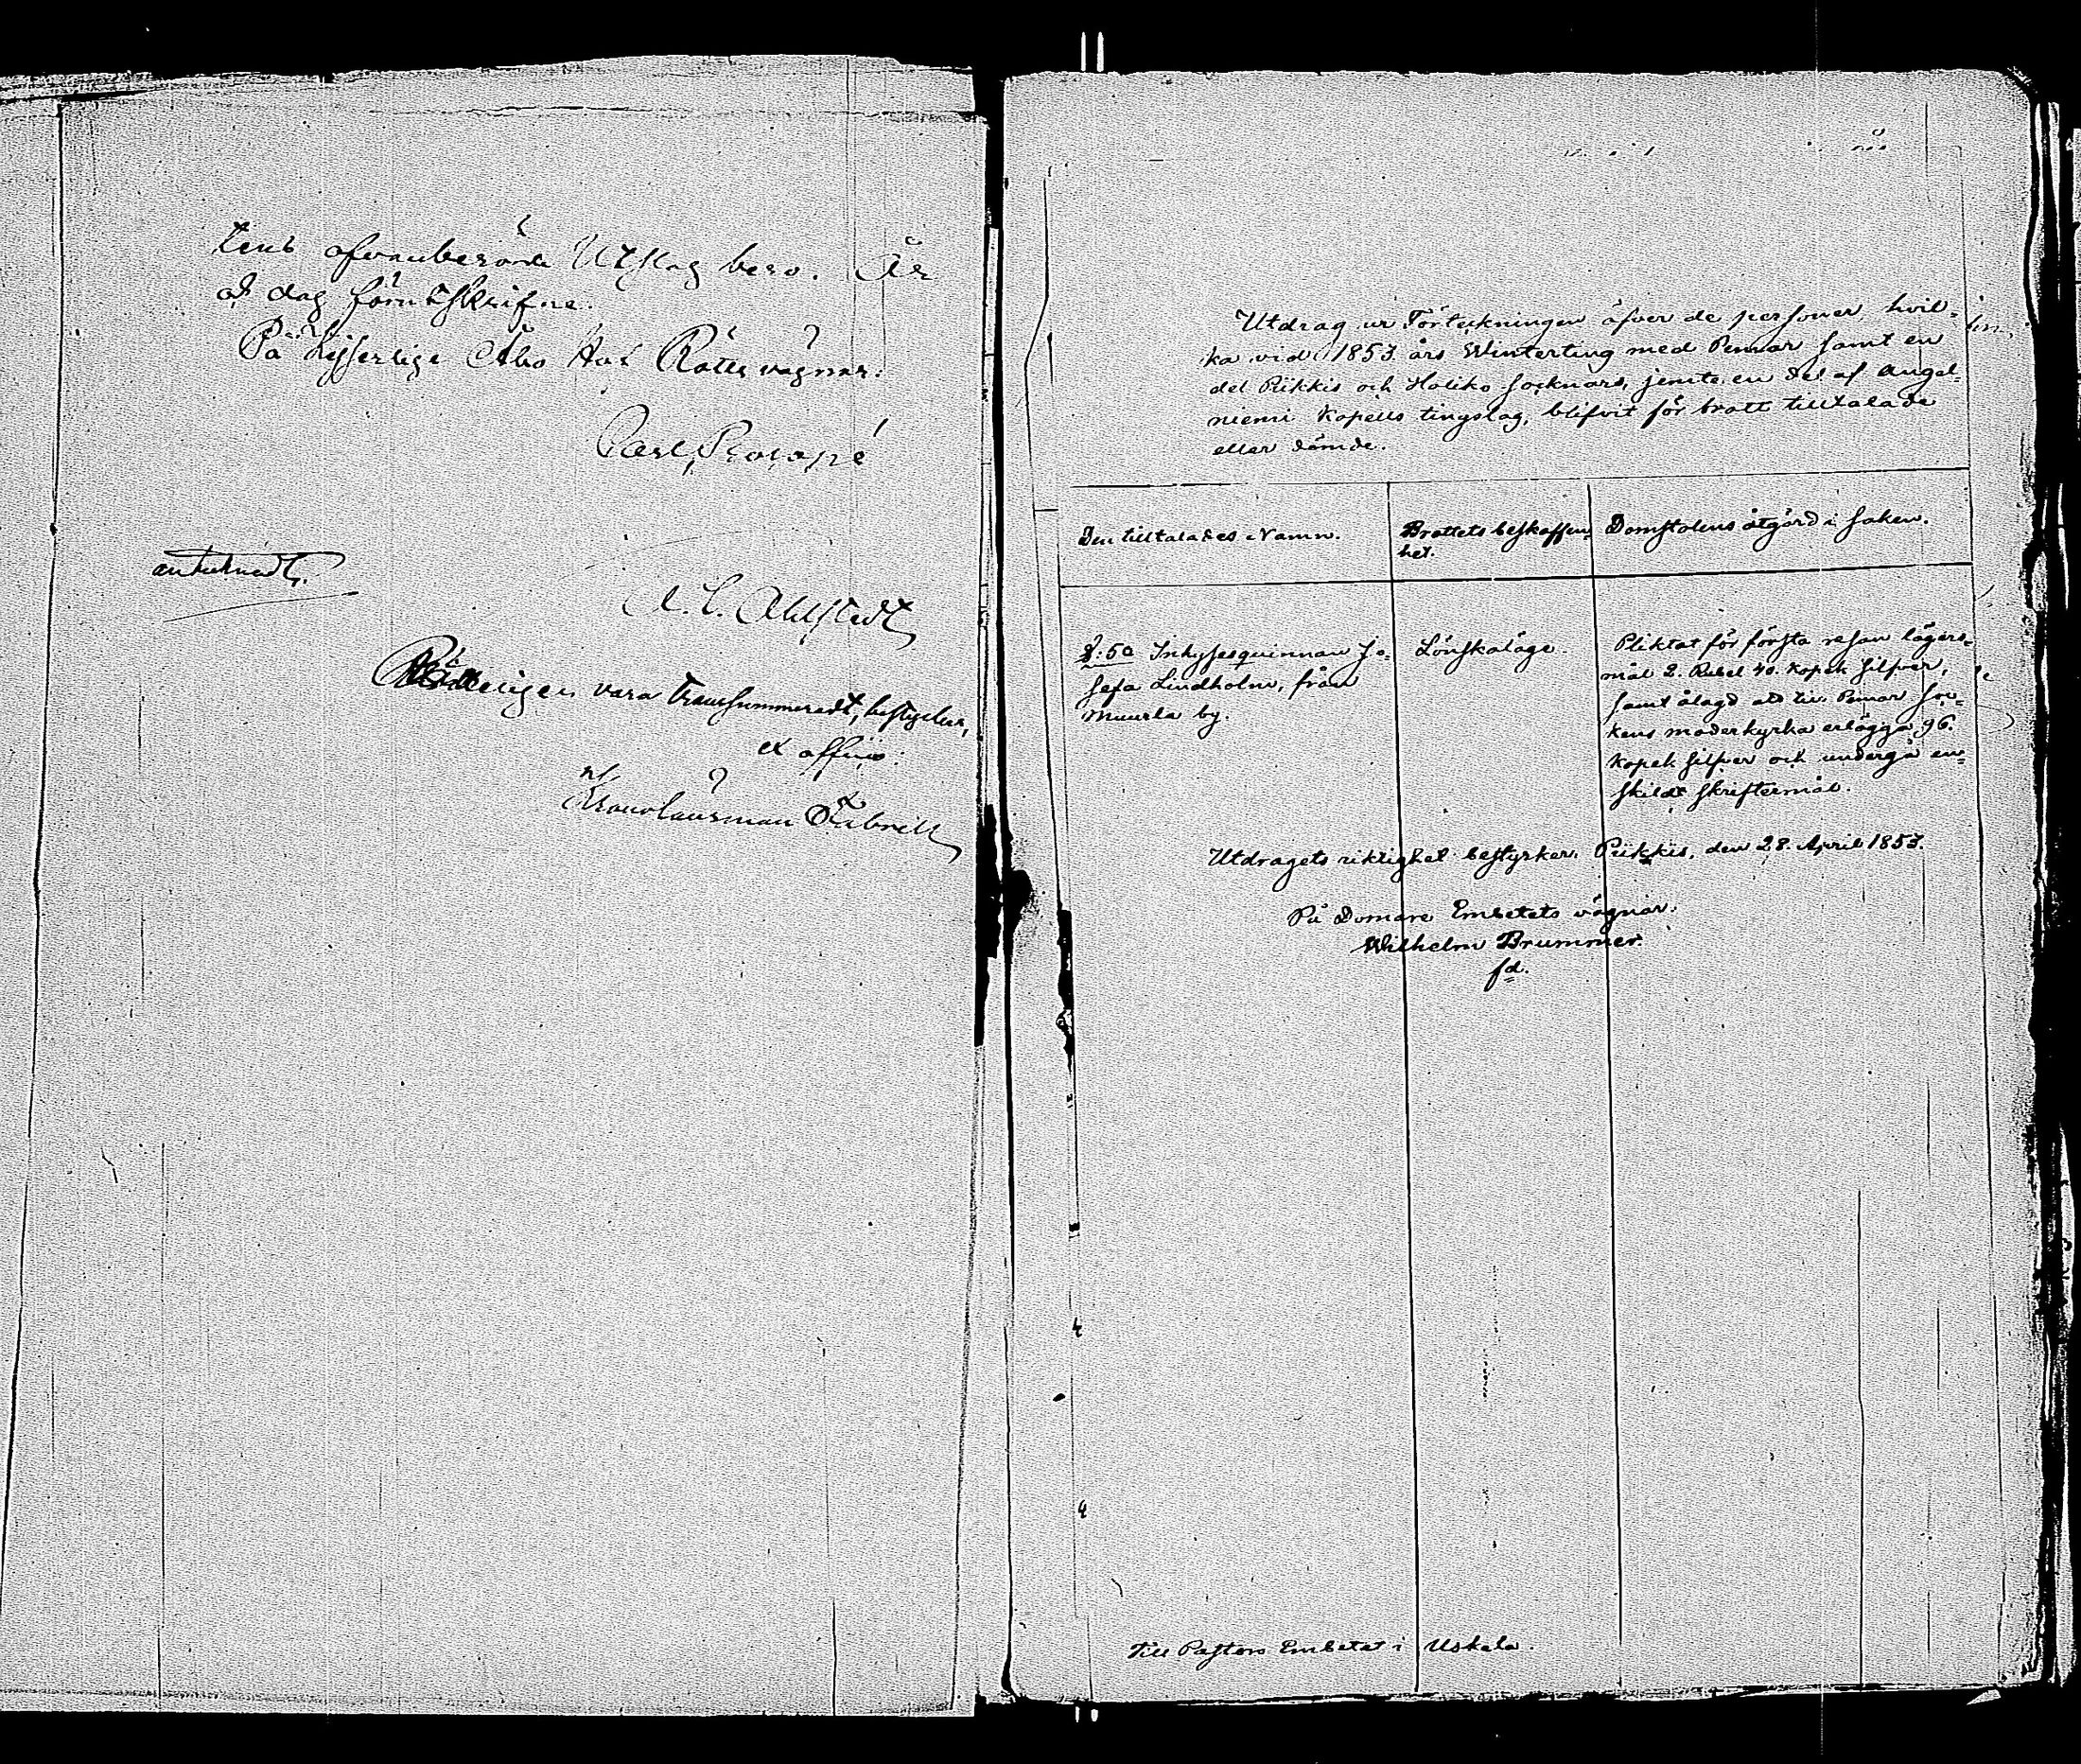 tens ofvanberörde Utslag bero. År
och dag förutskrifne.
På Kejserliga Åbo Hof Rätts vägnar:
Carl Procopé
antecknadt,
A. C. Ahlstedt
Rätteligen vara transsummeradt, bestyrker,
ex officio:
Kronolänsman
Utdrag ur Förteckningen öfver de personer, hvil-
ka vid 1853 års Winterting med Pemar samt en
del Piikkis och Haliko socknars, jemte en del af Angel-
niemi Kapells tingslag, blifvit för brott tilltalade
eller dömde.
Den tilltalades Namn.
Brottets beskaffen-
het.
Domstolens åtgärd i saken.
§. 50 Inhysesqvinnan Jo-
sefa Lindholm, från
Muurla by.
Lönskaläge.
Pliktat för första resan lägers-
mål 2. Rubel 40. Kopek silfver,
samt ålagd att till Pemar soc-
kens moderkyrka erlägga 96.
Kopek silfver och undergå en-
skildt skriftermål.
Utdragets riktighet bestyrker. Piikkis, den 28. April 1853.
På Domare Embetets vägnar:
Wilhelm Brummer.
fd.
Till Pastors Embetet i Uskela.